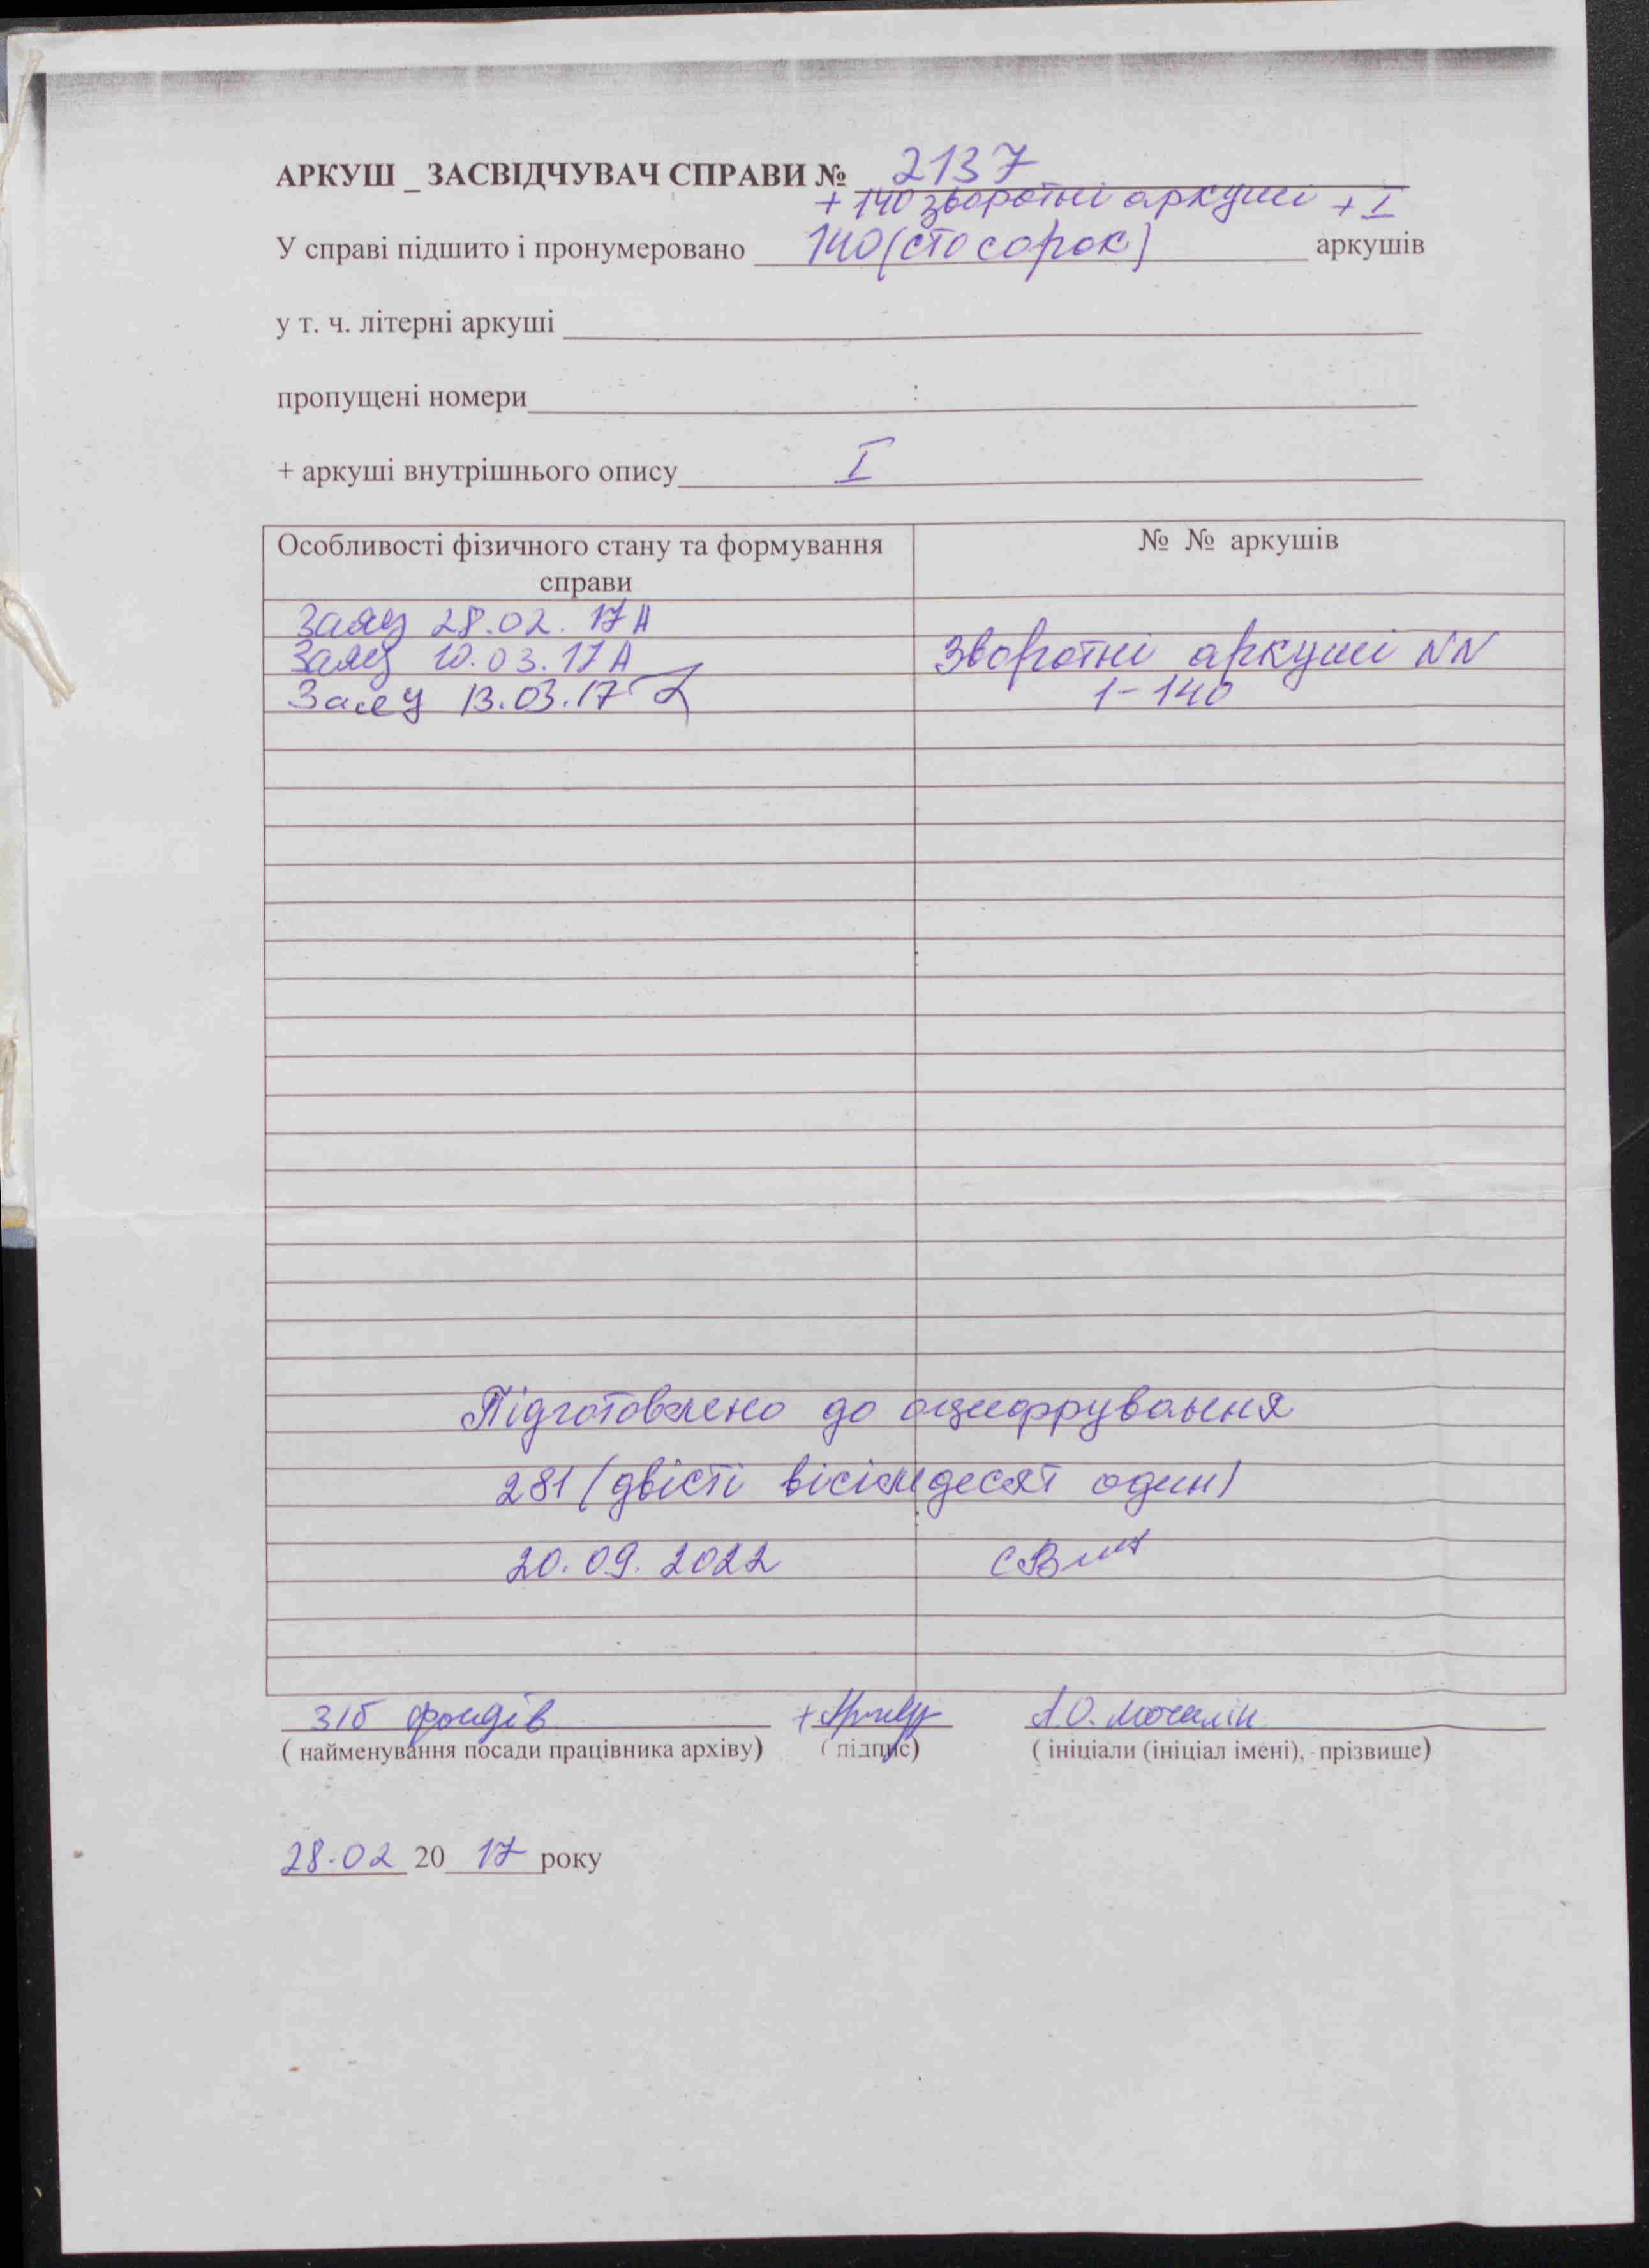 АРКУШ _ ЗАСВІДЧУВАЧ СПРАВИ № 2137
+ 140 зворотні аркуші + I
У справі підшито і пронумеровано 140 (сто сорок) аркушів
у т. ч. літерні аркуші
пропущені номери
+ аркуші внутрішнього опису I
Особливості фізичного стану та формування справи
№ № аркушів
28.02.17
10.03.17
13.03.17
Зворотні аркуші NN
1-140
Підготовлено до оцифрування
281 (двісті вісімдесят один)
20.09.2022
зіб фондів
( найменування посади працівника архіву)
( підпис)
( ініціали (ініціал імені), прізвище)
28.02 20 17 року